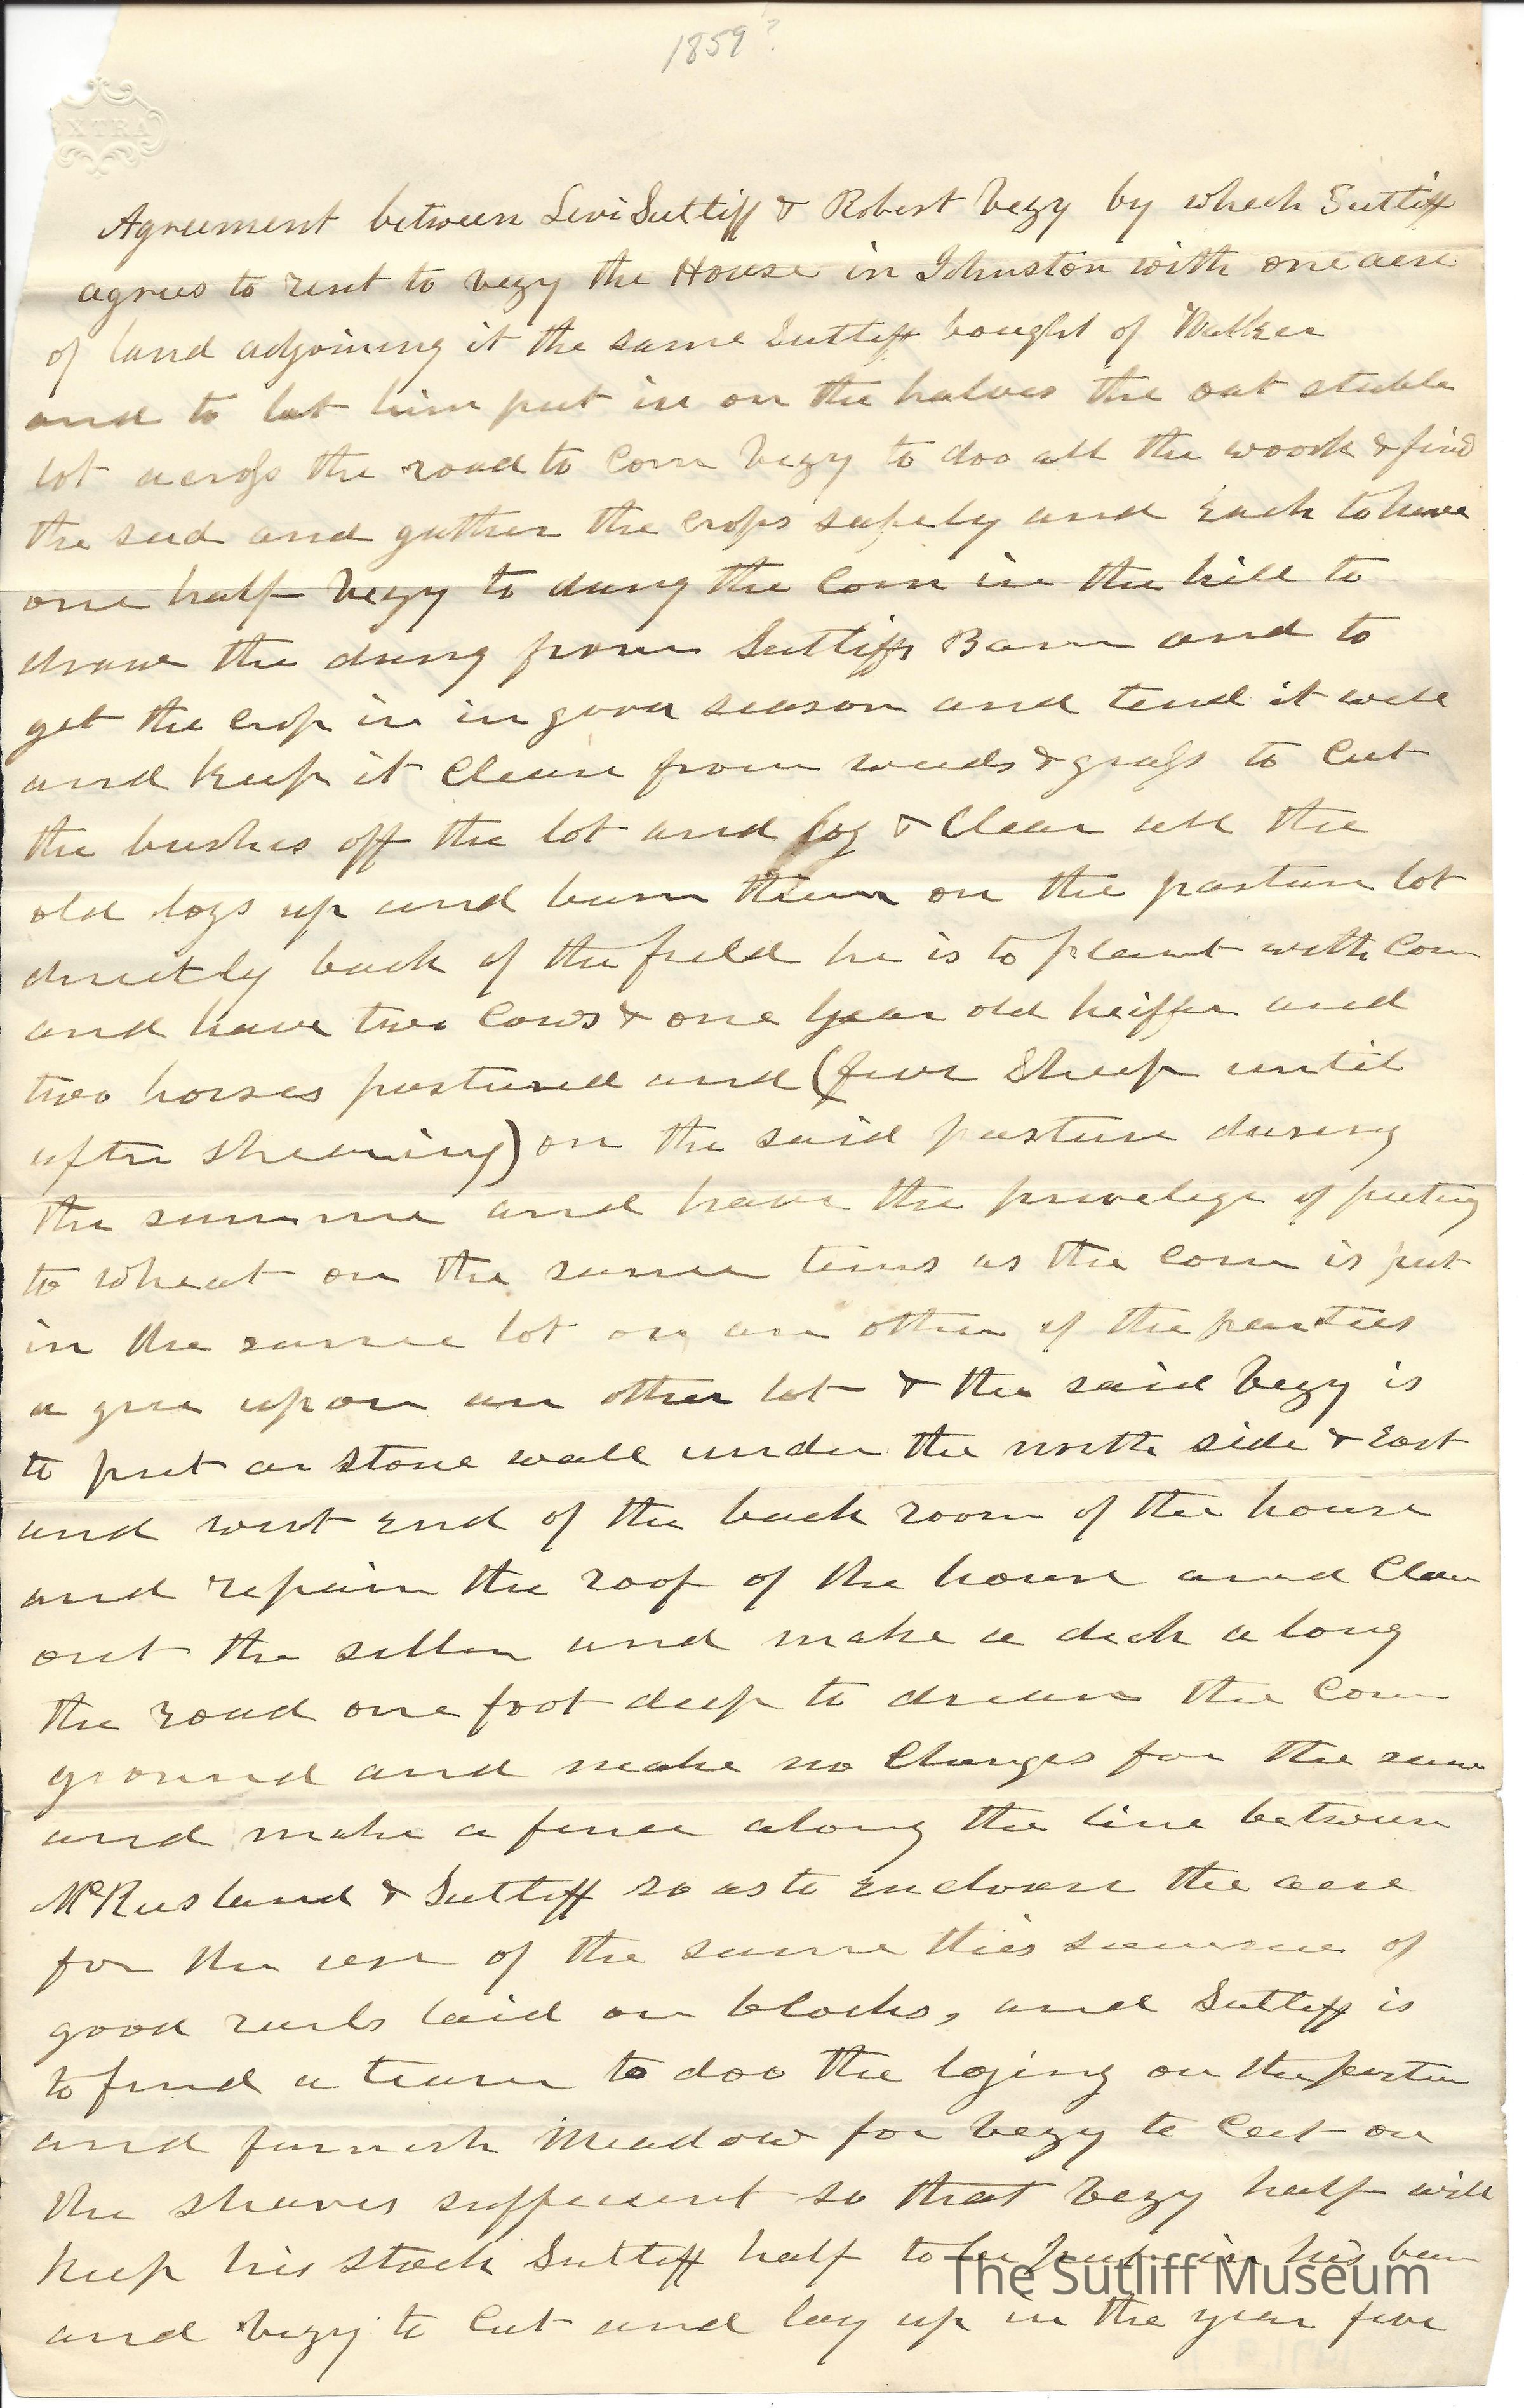 1859?
EXTRA
Agreement between Levi Sutliff & Robert Vezy by whech Sutliff
agrees to rent to vezy the House in Johnston with one acre
of land adjoining it the same Sutliff bought of Walker
and to let him put in on the halves the oat stuble
lot across the road to Corn Vezy to doo all the woork & find
the seed and gather the Crops safely and Each to have
one half Vezy to dung the Corn in the hill to
draw the dung from Sutliffs Barn and to
get the Crop in in good season and tend it well
and keep it Clean from weeds & grass to Cut
the bushes off the lot and log & Clear all the
old logs up and burn them on the pasture lot
directly back of the field he is to plant with Corn
and have two Cows & one year old heiffer and
two horses pastured and (five Sheep until
after shearing) on the said pasture during
the summer and have the privelege of puting
to wheat on the same terms as the Corn is put
in the same lot or an other if the parties
a gree upon an other lot & the said Vezy is
to put a stone wall under the north side & East
and west End of the back room of the house
and repair the roof of the house and Clean
out the seller and make a dich a long
the road one foot deep to drean the Corn
ground and make no Charges for the same
and make a fence along the line between
McRusland & Sutliff so as to Enclose the acre
for the use of the same this summer of
good rails laid on blocks, and Sutliff is
to find a team to doo the loging on the pasture
and furnish Meadow for Vezy to Cut on
the shares suffecient so that Vezy half will
keep his stock Sutliff half to be put in his barn
and Vezy to Cut and lay up in the year five
The Sutliff Museum